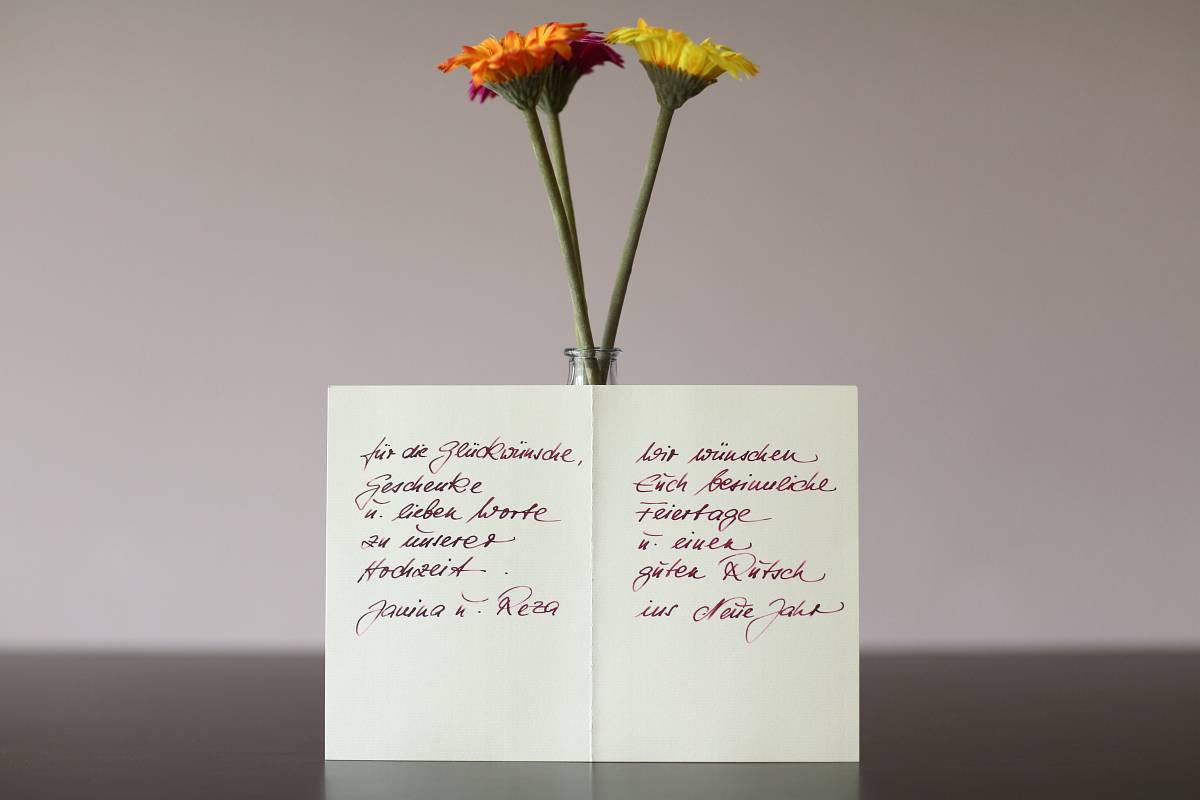 für die Glückwünsche,
Geschenke
u. lieben Worte
zu unserer
Hochzeit.
Janina u. Reza
Wir wünschen
Euch besinnliche
Feiertage
u. einen
guten Rutsch
ins Neue Jahr